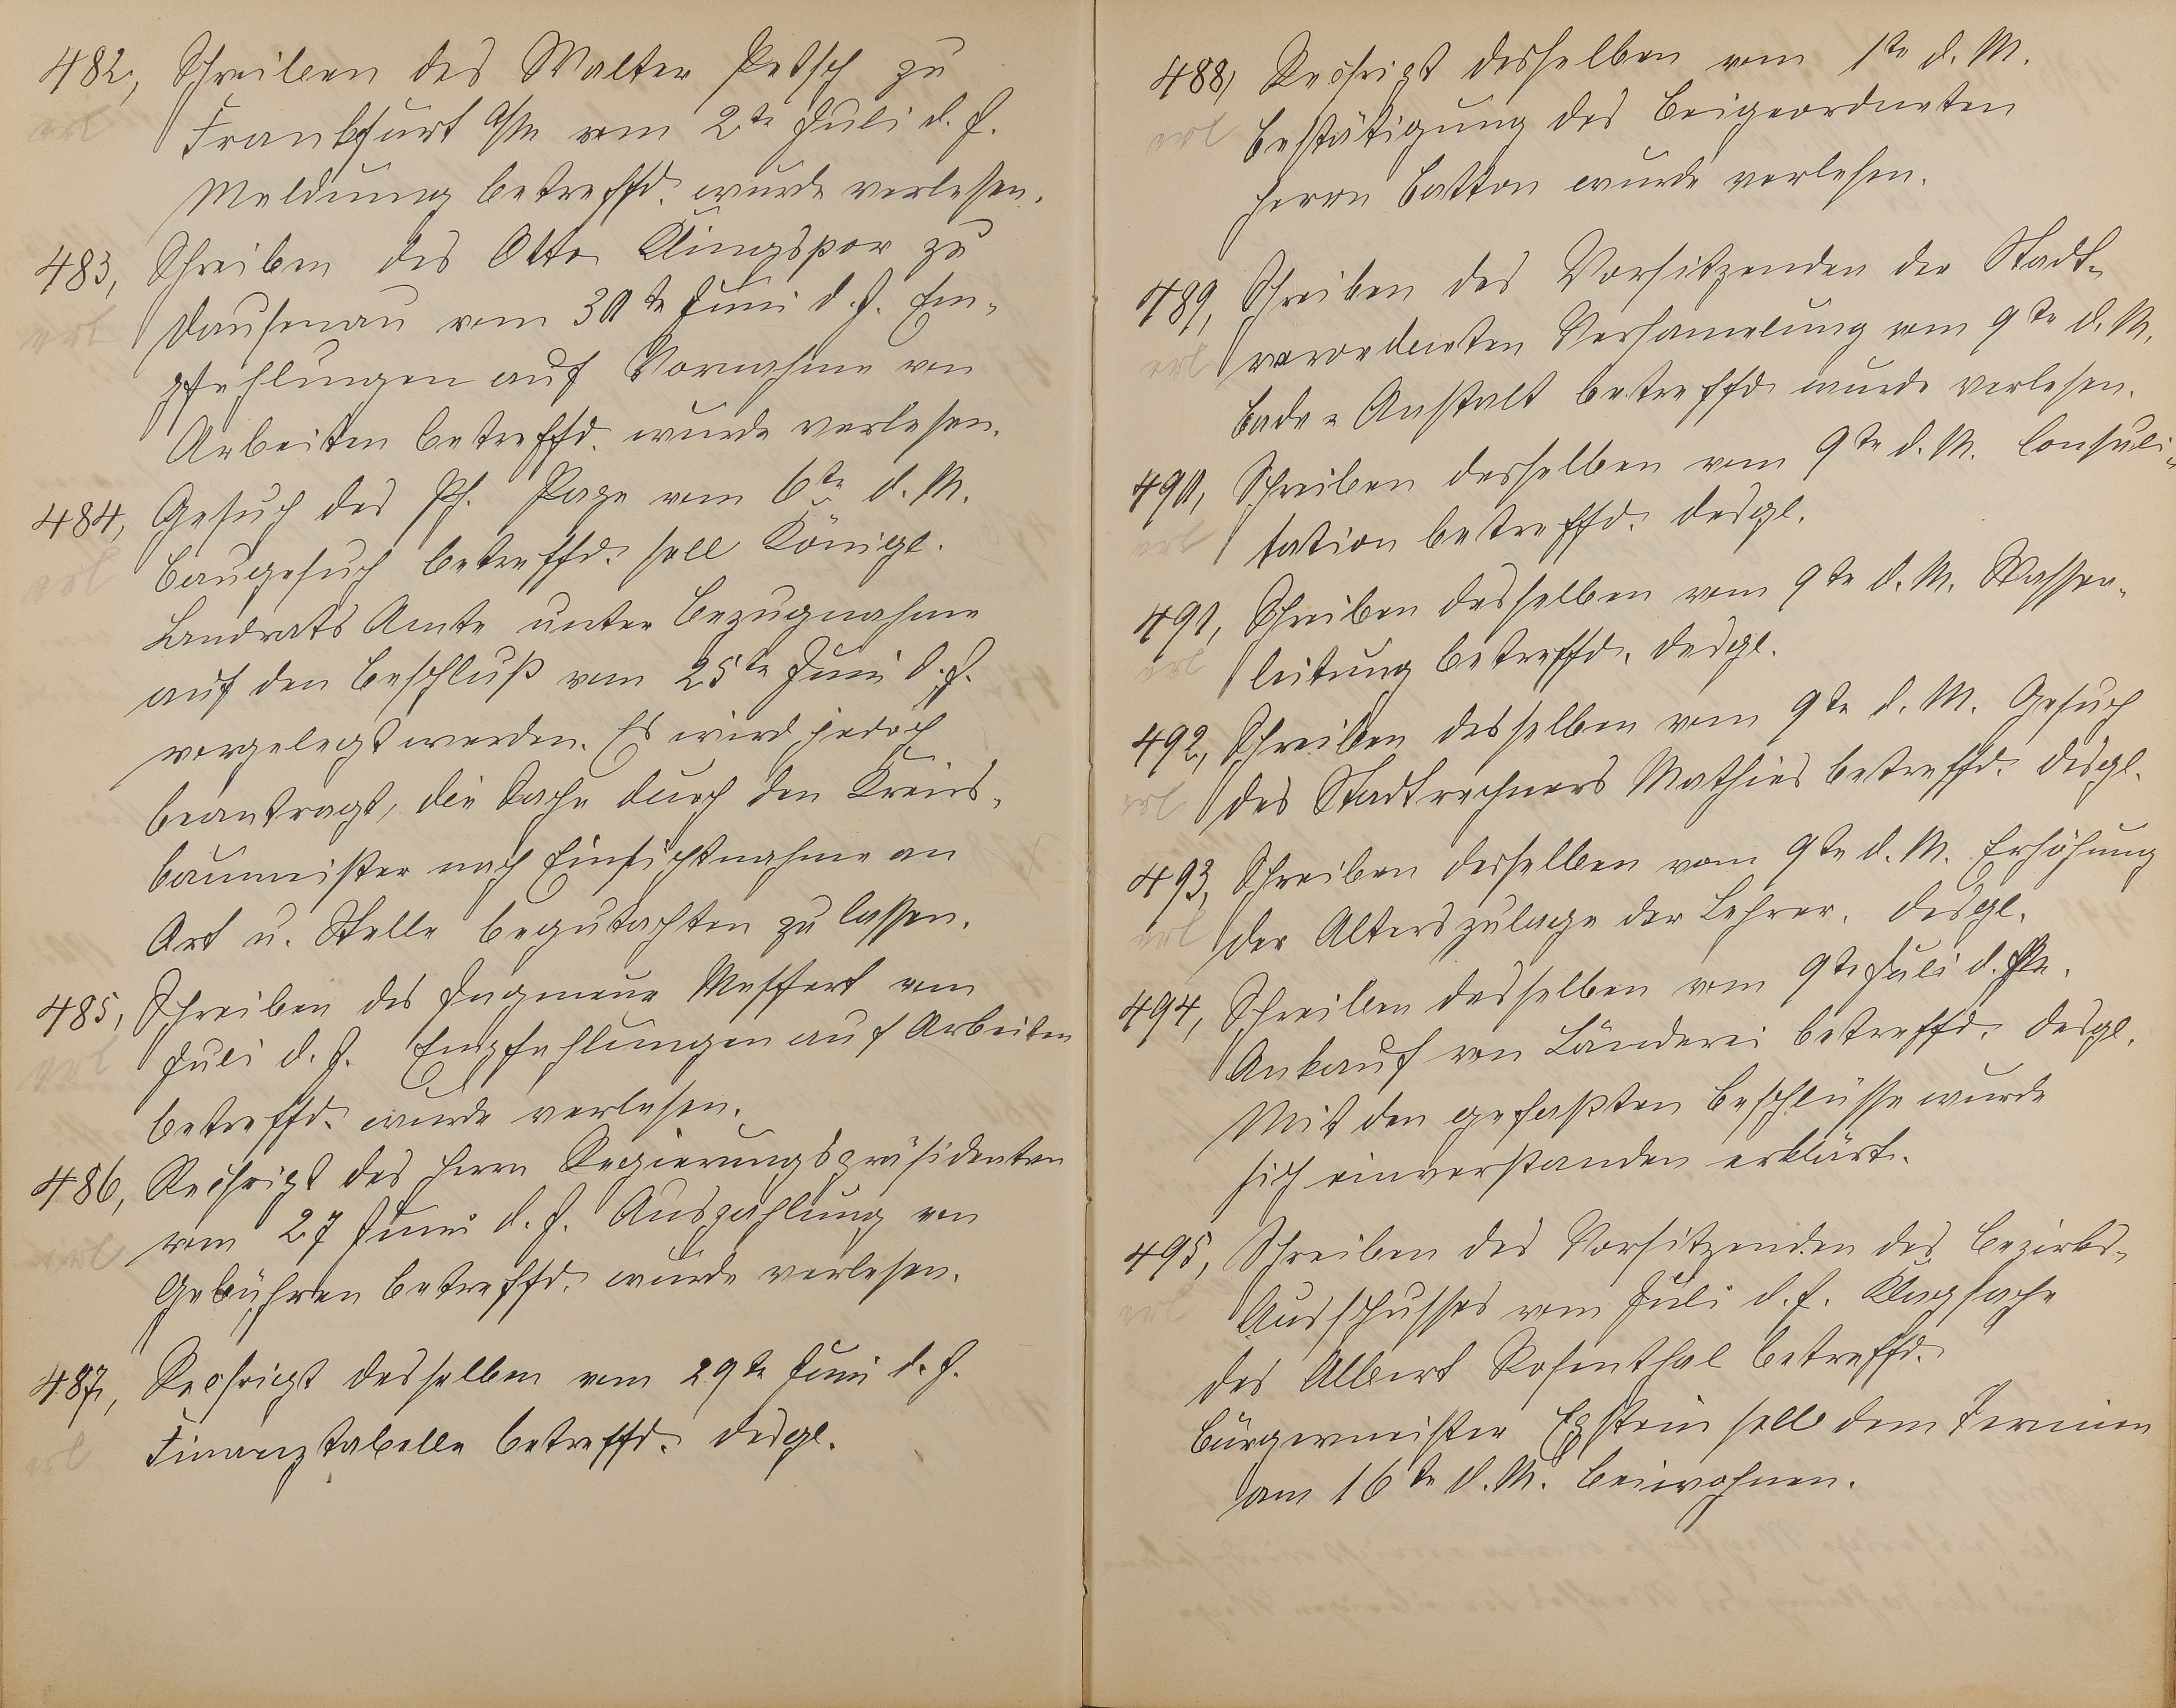 482, Schreiben des Walter Petsch zu
erl Frankfurt a/M vom 2te Juli d. J.
Meldung betreffd. wurde verlesen.
483, Schreiben des Otto Klingspor zu
erl Dausenau vom 30te Juni d. J. Em-
pfehlungen auf Vornahme von
Arbeiten betreffd. wurde verlesen.
484, Gesuch des Ph. vom 6te d. M.
erl Baugesuch betreffd. soll Königl.
Landrats Amte unter Bezugnahme
auf den Beschluß vom 25te Juni d. J.
vorgelegt werden. Es wird jedoch
beantragt, die Sache durch den Kreis-
baumeister nach Einsichtnahme an
Ort u. Stelle begutachten zu lassen.
485, Schreiben des Ingenieur Meffert vom
erl Juli d. J. Empfehlungen auf Arbeiten
betreffd. wurde verlesen.
486, Rescript des Herrn Regierungspräsidenten
erl vom 27 Juni d. J. Auszahlung von
Gebühren betreffd. wurde verlesen.
487, Rescript desselben vom 29te Juni d. J.
erl Finanztabelle betreffd. desgl.
488, Rescript desselben vom 1te d. M.
erl Bestätigung des Beigeordneten
Herrn Batton wurde verlesen.
489, Schreiben des Vorsitzenden der Stadt-
erl verordneten Versamelung vom 9te d. M.
Bade-Anstalt betreffd. wurde verlesen.
490, Schreiben desselben vom 9te d. M. Consuli-
erl tation betreffd. desgl.
491, Schreiben desselben vom 9te d. M. Wasser-
erl leitung betreffd. desgl.
492, Schreiben desselben vom 9te d. M. Gesuch
erl des Stadtrechners Mathies betreffd. desgl.
493, Schreiben desselben vom 9te d. M. Erhöhung
erl der Alterszulage der Lehrer. desgl.
494, Schreiben desselben vom 9te Juli d.
Ankauf von Länderei betreffd. desgl.
Mit den gefaßten Beschlüsse wurde
sich einverstanden erklärt.
495, Schreiben des Vorsitzenden des Bezirks-
erl Ausschusses vom Juli d. J. Klagsache
des Albert Rosenthal betreffd.
Bürgermeister Egstein soll dem Termin
am 16te d. M. beiwohnen.